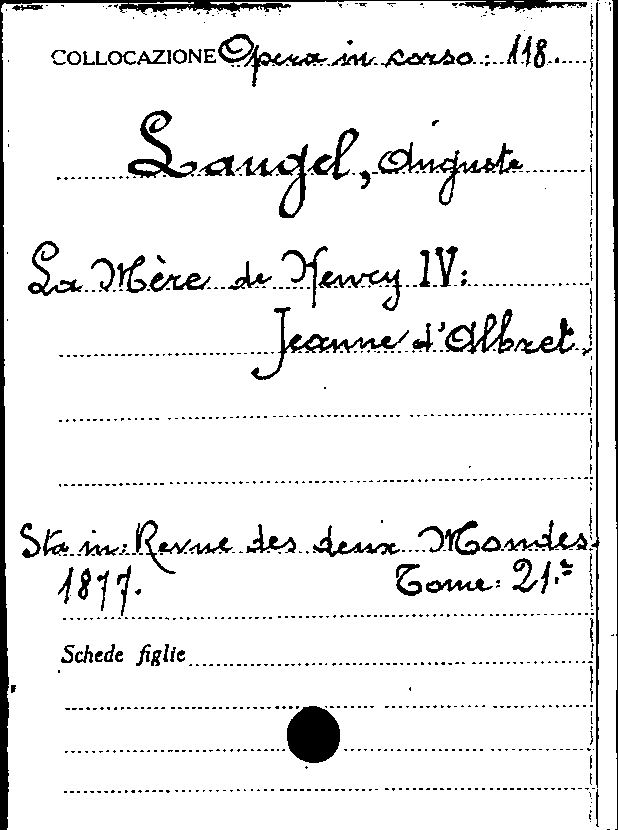 COLLOCAZIONE Opera in corso: 118.
Laugel, Auguste
La Mère de Henry IV:
Jeanne d'Albret.
Sta in: Revue des deux Mondes.
1877. Tome: 21.º
Schede figlie